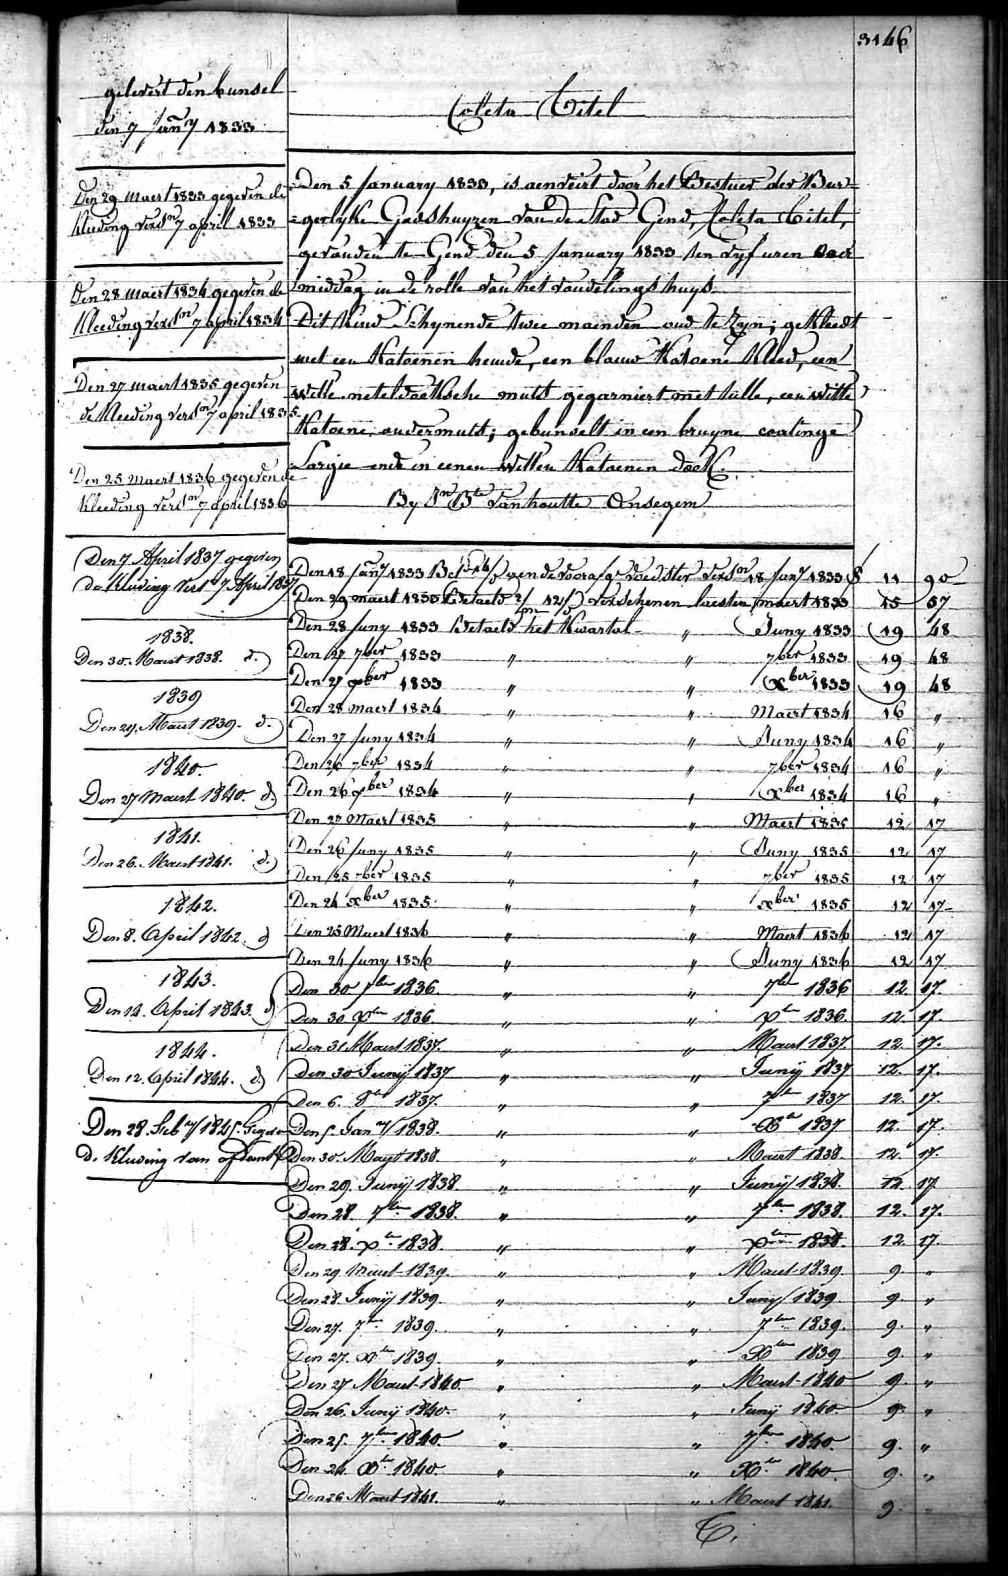 3146
Coleta Citel
gelevert den bunsel
den 7 Jan.ry 1833
Den 29 maert 1833 gegeven de
kleeding versn 7 april 1833
Den 28 maert 1834 gegeven de
kleeding versn 7 april 1834
Den 27 maert 1835 gegeven
de kleeding versn 7 april 1835
Den 25 maert 1836 gegeven de
kleeding versn 7 april 1836
Den 7 April 1837 gegeven
de kleeding vers 7 April 1837
1838.
Den 30. Maert 1838. d.)
1839
Den 29. Maert 1839. d.)
1840.
Den 27 Maert 1840. d)
1841.
Den 26. Maert 1841. d.)
1842.
Den 8. April 1842. d)
1843.
Den 14. April 1843. d)
1844.
Den 12. April 1844. d)
Den 28. Feb.ry 1845. Gegeven
de kleeding van
Den 5 January 1833, is aenveirt door het Bestuer der Bur-
=gerlyke Godshuyzen van de Stad Gend, Coleta Citel,
gevonden te Gend den 5 January 1833 ten vyf uren naer
middag in de rolle van het vondelingshuys.
Dit kind schynende twee maenden oud te zyn; gekleedt
met een katoenen hemde, een blauw katoene kleed, een
witte neteldoeksche muts gegarniert met tulle, een witte
katoene ondermuts; gebunselt in een bruyne coatinge
Sargie ende in eenen witten katoenen doek.
By Jn Bte Vanhoutte Ansegem
Den 18 Jan.y 1833 Bet. aen de voorsz. voedster versn 18 Jan.y 1833 ƒ 11 90
Den 29 maert 1833 betaeld verschenen laesten maert 1833 15 57
Den 28 Juny 1833 betaeld het kwartal " Juny 1833 19 48
Den 27 7ber 1833 " " 7ber 1833 19 48
Den 27 xber 1833 " " Xber 1833 19 48
Den 28 maert 1834 " " Maert 1834 16 "
Den 27 Juny 1834 " " Juny 1834 16 "
Den 26 7ber 1834 " " 7ber 1834 16 "
Den 26 xber 1834 " " xber 1834 16 "
Den 27 Maert 1835 " " Maert 1835 12 17
Den 26 Juny 1835 " " Juny 1835 12 17
Den 25 7ber 1835 " " 7ber 1835 12 17
Den 24 xber 1835. " " xber 1835 12 17
Den 25 Maert 1836 " " Maert 1836 12 17
Den 24 Juny 1836 " " Juny 1836 12 17
Den 30 7ber 1836. " " 7ber 1836 12. 17.
Den 30 Xber 1836 " " Xber 1836. 12. 17.
Den 31 Maert 1837. " " Maert 1837. 12. 17.
Den 30 Junij 1837 " " Junij 1837 12. 17.
Den 6. 8br 1837. " " 7br 1837 12. 17.
Den 5. Jan.ry 1838. " " Xbr 1837 12. 17.
Den 30. Maert 1838 " " Maert 1838. 12. 17.
Den 29. Junij 1838 " " Junij 1838. 12. 17.
Den 28. 7ber 1838. " " 7ber 1838. 12. 17.
Den 28. Xbr 1838. " " Xber 1838. 12. 17.
Den 29 Maert 1839. " " Maert 1839 9 "
Den 28. Junij 1839. " " Junij 1839. 9. "
Den 27. 7br 1839. " " 7ber 1839. 9. "
Den 27. Xbr 1839. " " Xber 1839 9. "
Den 27 Maert 1840. " " Maert 1840 9. "
Den 26. Junij 1840. " " Junij 1840 9. "
Den 25. 7ber 1840. " " 7ber 1840. 9. "
Den 24. Xbr 1840. " " Xbr 1840. 9. "
Den 26 Maert 1841. " " Maert 1841. 9